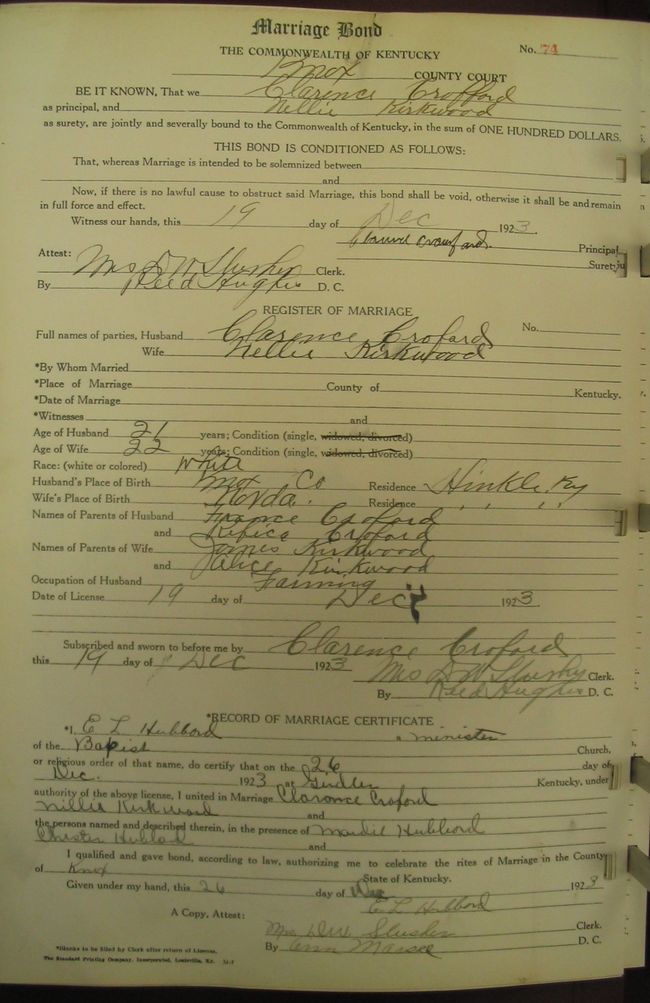 Marriage Bond
No. 74
THE COMMONWEALTH OF KENTUCKY
Knox COUNTY COURT
BE IT KNOWN, That we Clarence Crofford
as principal, and Nellie Kirkwood
as surety, are jointly and severally bound to the Commonwealth of Kentucky, in the sum of ONE HUNDRED DOLLARS.
THIS BOND IS CONDITIONED AS FOLLOWS:
That, whereas Marriage is intended to be solemnized between
and
Now, if there is no lawful cause to obstruct said Marriage, this bond shall be void, otherwise it shall be and remain
in full force and effect.
Witness our hands, this 19 day of Dec 1923.
Principal
Attest: Surety
Mrs D W Slusher Clerk.
By Reed Hughes D. C.
REGISTER OF MARRIAGE
Full names of parties, Husband Clarence Croford No.
Wife Nellie Kirkwood
*By Whom Married
*Place of Marriage County of Kentucky.
*Date of Marriage
*Witnesses and
Age of Husband 21 years; Condition (single, widowed, divorced)
Age of Wife 22 years; Condition (single, widowed, divorced)
Race: (white or colored) White
Husband's Place of Birth Knox Co Residence Hinkle, Ky
Wife's Place of Birth Residence " "
Names of Parents of Husband France Croford
and Rebica Croford
Names of Parents of Wife James Kirkwood
and Alice Kirkwood
Occupation of Husband Farming
Date of License 19 day of Dec 1923
Subscribed and sworn to before me by Clarence Croford
this 19 day of Dec 1923 Mrs D W Slusher Clerk.
By Reed Hughes D. C.
*RECORD OF MARRIAGE CERTIFICATE
*I, E L Hubbord a minister
of the Bapist Church,
or religious order of that name, do certify that on the 26 day of
Dec. 1923 at Girdler Kentucky, under
authority of the above license, I united in Marriage Clarence Croford
Nillie Kirkword and
the persons named and described therein, in the presence of Hubbord
Chester and
I qualified and gave bond, according to law, authorizing me to celebrate the rites of Marriage in the County
of Knox State of Kentucky.
Given under my hand, this 26 day of Dec 1923
E L Hubbord
A Copy, Attest:
Mrs D W Slusher Clerk.
By D. C.
*Blanks to be filled by Clerk after return of License.
The Standard Printing Company, Incorporated, Louisville, Ky.